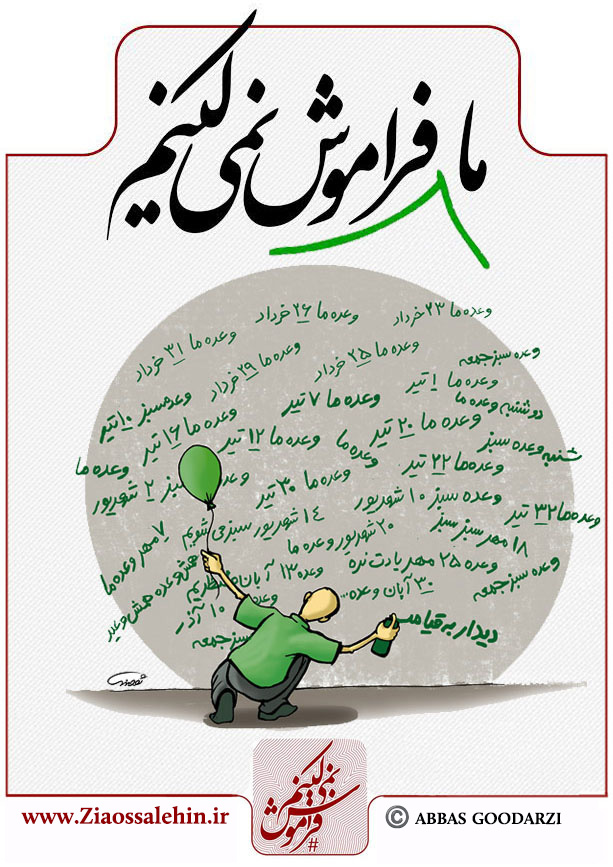 ما فراموش نمی کنیم
وعده ما ۲۳ خرداد
وعده ما ۲۶ خرداد
وعده ما ۳۱ خرداد
وعده سبز جمعه
وعده ما ۲۵ خرداد
وعده ما ۲۹ خرداد
وعده ما ۱ تیر
دوشنبه وعده ما
وعده ما ۷ تیر
وعده سبز ۱۰ تیر
وعده ما ۲۰ تیر
وعده ما ۱۲ تیر
وعده ما ۱۶ تیر
شنبه وعده سبز
وعده ما
وعده ما
وعده ما ۲۲ تیر
وعده ما ۳۰ تیر
وعده سبز ۲ شهریور
وعده ما ۳۲ تیر
وعده سبز ۱۰ شهریور
۱۴ شهریور سبز می شویم
۷ مهر وعده ما
۱۸ مهر سبز سبز
۲۰ شهریور وعده ما
وعده سبز جمعه
وعده ۲۵ مهر یادت نره
وعده ۱۳ آبان
۳۰ آبان وعده...
وعده
۱۰ آذر
سبز جمعه
دیدار به قیامت
www.Ziaossalehin.ir
#فراموش نمی کنیم
© ABBAS GOODARZI